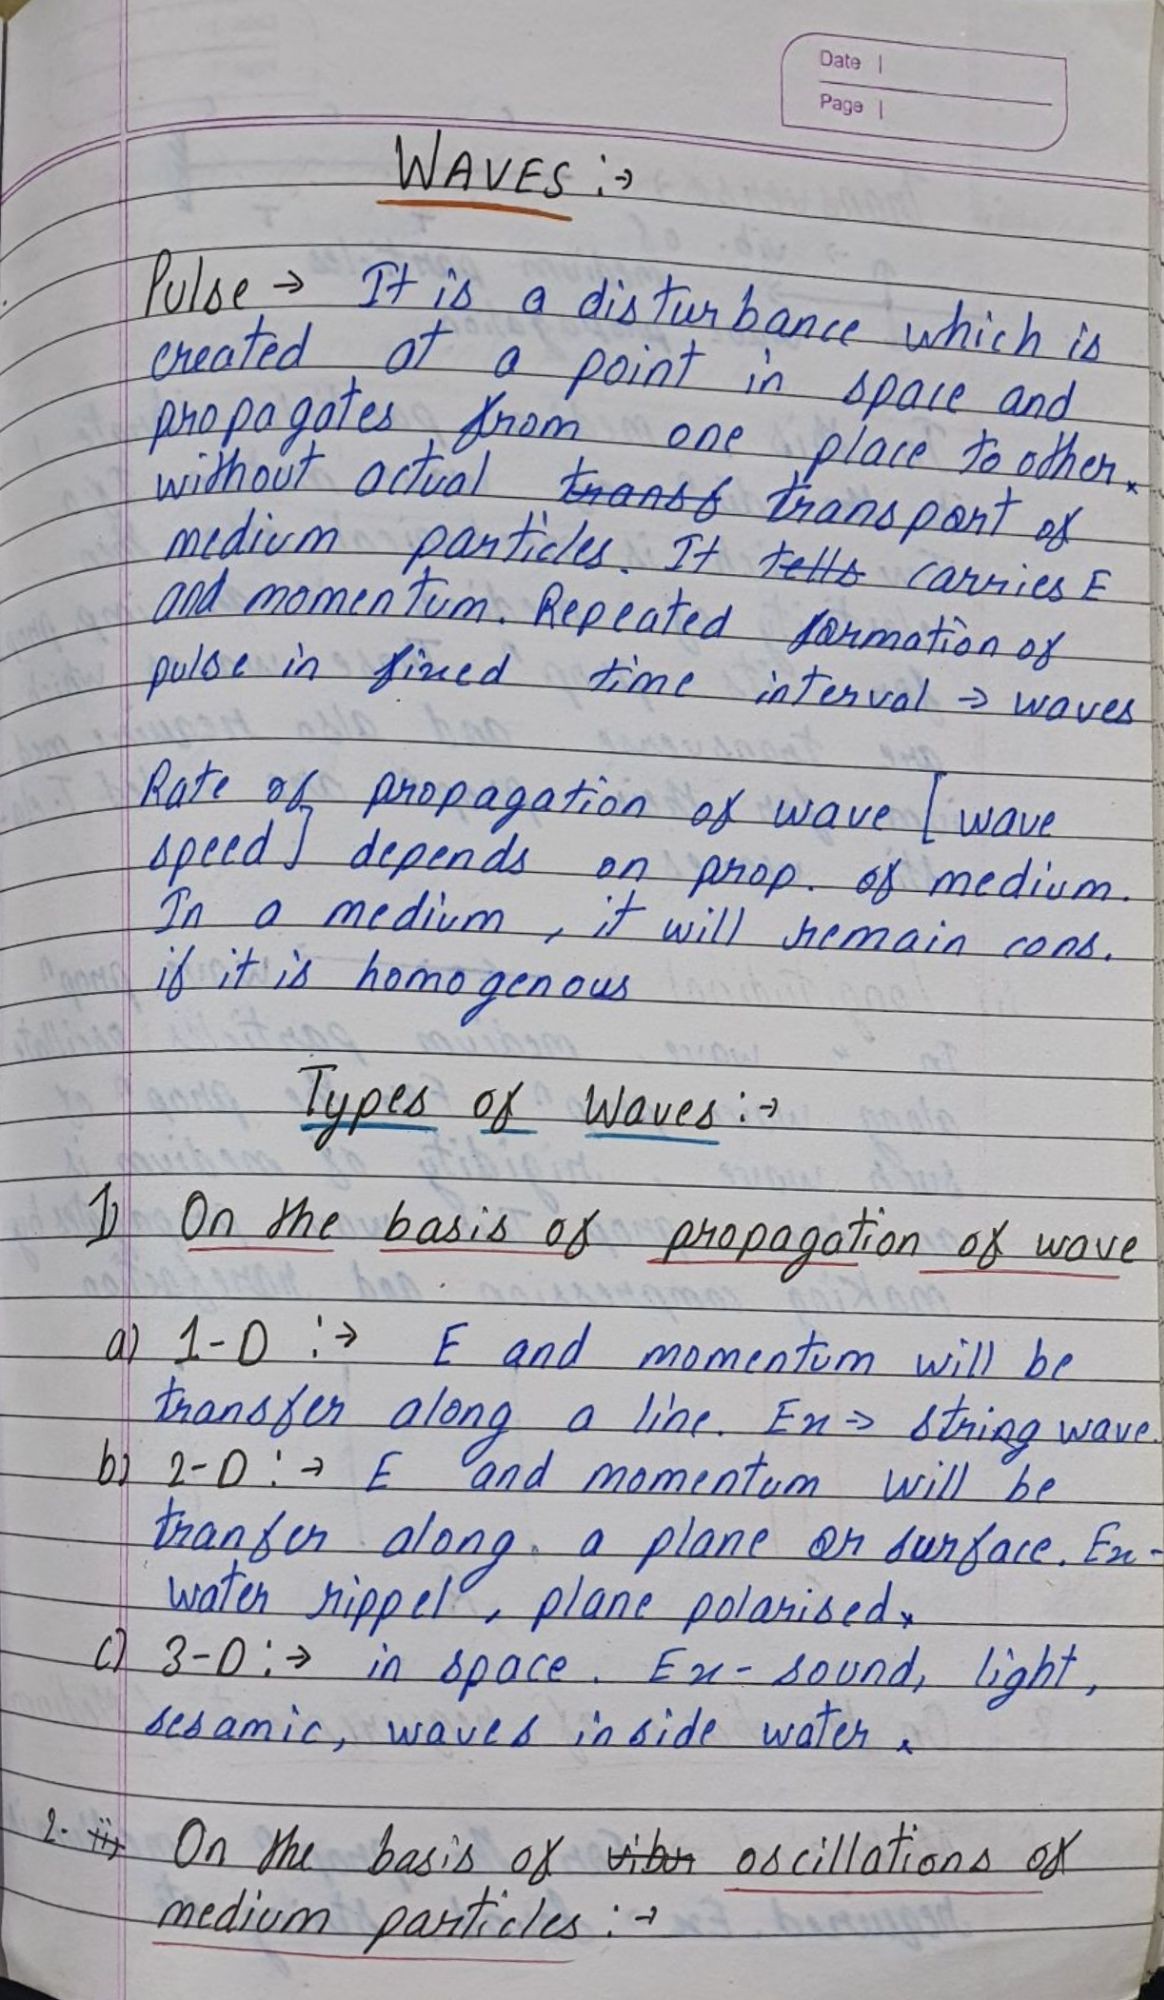 Date |
Page |
WAVES :→
Pulse → It is a disturbance which is
created at a point in space and
propagates from one place to other.
without actual transf transport of
medium particles. It tells carries E
and momentum. Repeated formation of
pulse in fixed time interval → waves
Rate of propagation of wave [wave
speed] depends on prop. of medium.
In a medium, it will remain cons.
if it is homogenous
Types of Waves :→
1) On the basis of propagation of wave
a) 1-D :→ E and momentum will be
transfer along a line. Ex → string wave.
b) 2-D :→ E and momentum will be
tranfer along. a plane or surface. Ex-
water rippel, plane polarised.
c) 3-D :→ in space. Ex- sound, light,
sesamic, waves inside water.
2. ii) On the basis of vibr oscillations of
medium particles :→